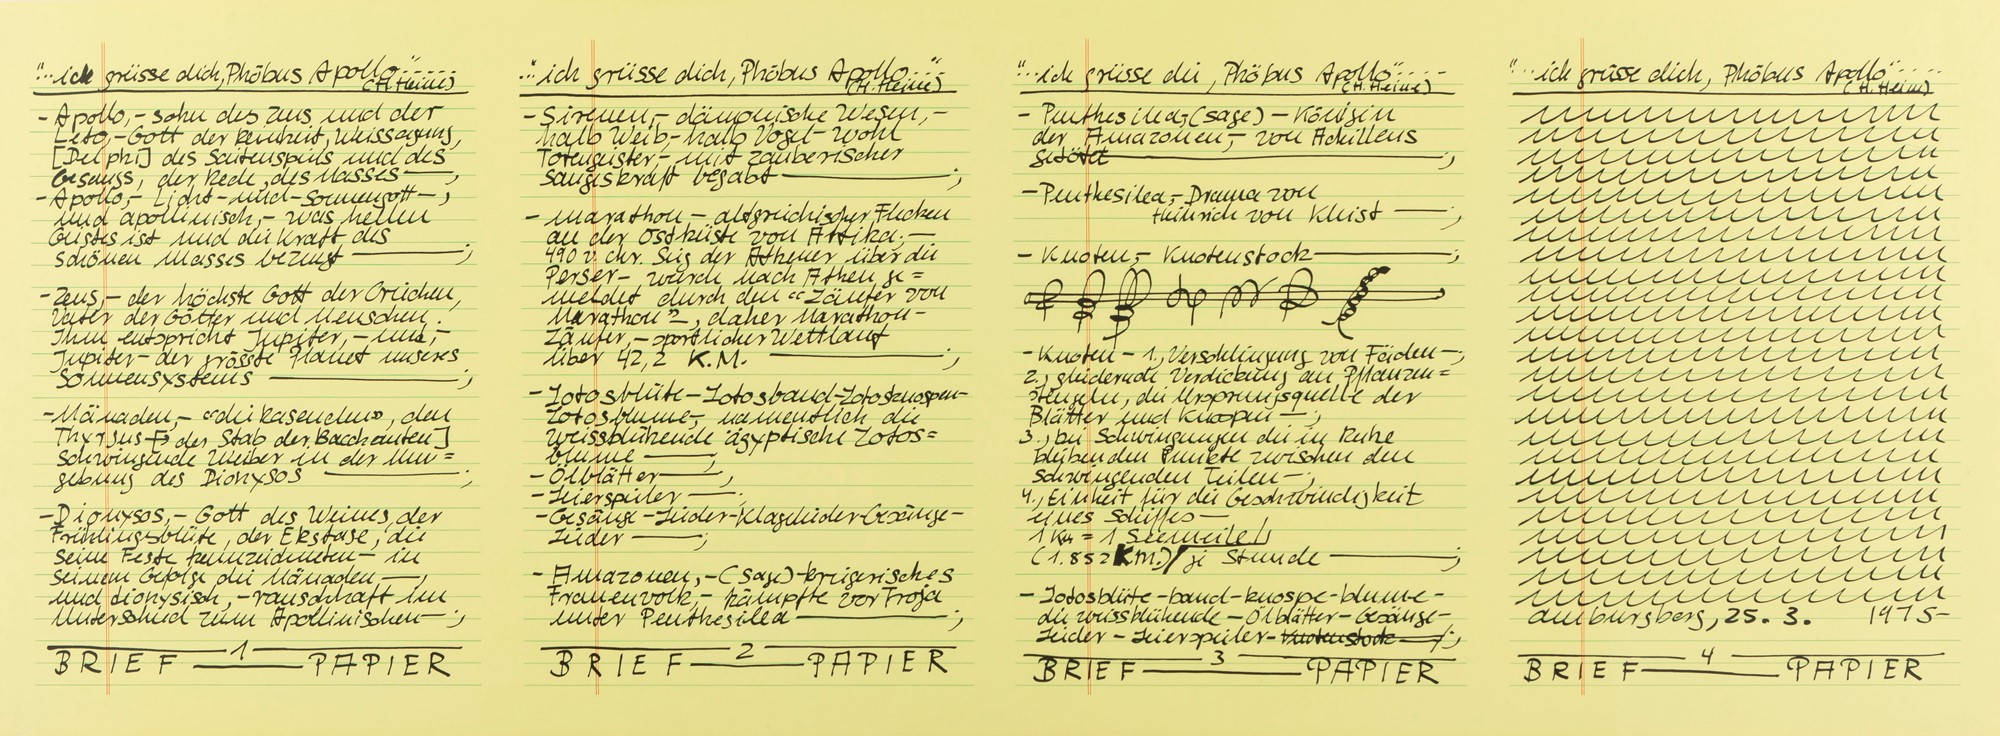 "...ich grüsse dich, Phöbus Apollo"....
(H. Heine)
- Apollo,- sohn des Zeus und der
Leto,- Gott der Reinheit, Weissagung,
[Delphi] des Saitenspiels und des
Gesangs, der Rede, des Masses —;
- Apollo,- Licht- und- Sonnengott —;
und apollinisch,- was hellen
Geistes ist und die Kraft des
schönen Masses bezeugt —;
- Zeus,- der höchste Gott der Griechen,
Vater der Götter und Menschen.
Ihm entspricht Jupiter,- und,-
Jupiter- der grösste Planet unseres
Sonnensystems —;
- Mänaden,- "die Rasenden", den
Thyrsus [- der Stab der Bacchanten]
schwingende Weiber in der Um=
gebung des Dionysos —;
- Dionysos,- Gott des Weines, der
Frühlingsblüte, der Ekstase, die
seine Feste kennzeichneten - in
seinem Gefolge die Mänaden —;
und dionysisch,- rauschhaft im
Unterschied zum Apollinischen —;
BRIEF — 1 — PAPIER
"...ich grüsse dich, Phöbus Apollo..."
(H. Heine)
- Sirenen,- dämonische Wesen,-
halb Weib,- halb Vogel- wohl
Totengeister,- mit zauberischer
Sangeskraft begabt —;
- Marathon,- altgriechischer Flecken
an der Ostküste von Attika;-
490 v. Chr. Sieg der Athener über die
Perser- wurde nach Athen ge=
meldet durch den "Läufer von
Marathon", daher Marathon-
Läufer,- sportlicher Wettlauf
über 42,2 K.M. —;
- Lotosblüte-Lotosband-Lotosknospen-
Lotosblume,- namentlich die
weissblühende ägyptische Lotos=
blume —;
- Ölblätter —;
- Leierspieler —;
- Gesänge-Lieder-Klagelieder-Gesänge-
Lieder —;
- Amazonen,- (Sage)-kriegerisches
Frauenvolk,- kämpfte vor Troja
unter Penthesilea —;
BRIEF — 2 — PAPIER
"...ich grüsse die, Phöbus Apollo"....
(H. Heine)
- Penthesilea,- (Sage) - Königin
der Amazonen,- von Achillens
getötet —;
- Penthesilea,- Drama von
Heinrich von Kleist —;
- Knoten,- Knotenstock —;
- Knoten - 1., Verschlingung von Fäden —;
2., gliedernde Verdickung an Pflanzen=
stengeln, die Ursprungsquelle der
Blätter und Knospen —;
3., bei Schwingungen die in Ruhe
bleibenden Punkte zwischen den
schwingenden Teilen —;
4., Einheit für die Geschwindigkeit
eines Schiffes —
1 Kn = 1 Seemeile
(1.852 KM.)/ je Stunde —;
- Lotosblüte-band-knospe-blume-
die weissblühende - Ölblätter-Gesänge-
Lieder-Leierspieler-Knotenstock —;
BRIEF — 3 — PAPIER
"...ich grüsse dich, Phöbus Apollo"....
(H. Heine)
25. 3. 1975-
BRIEF — 4 — PAPIER